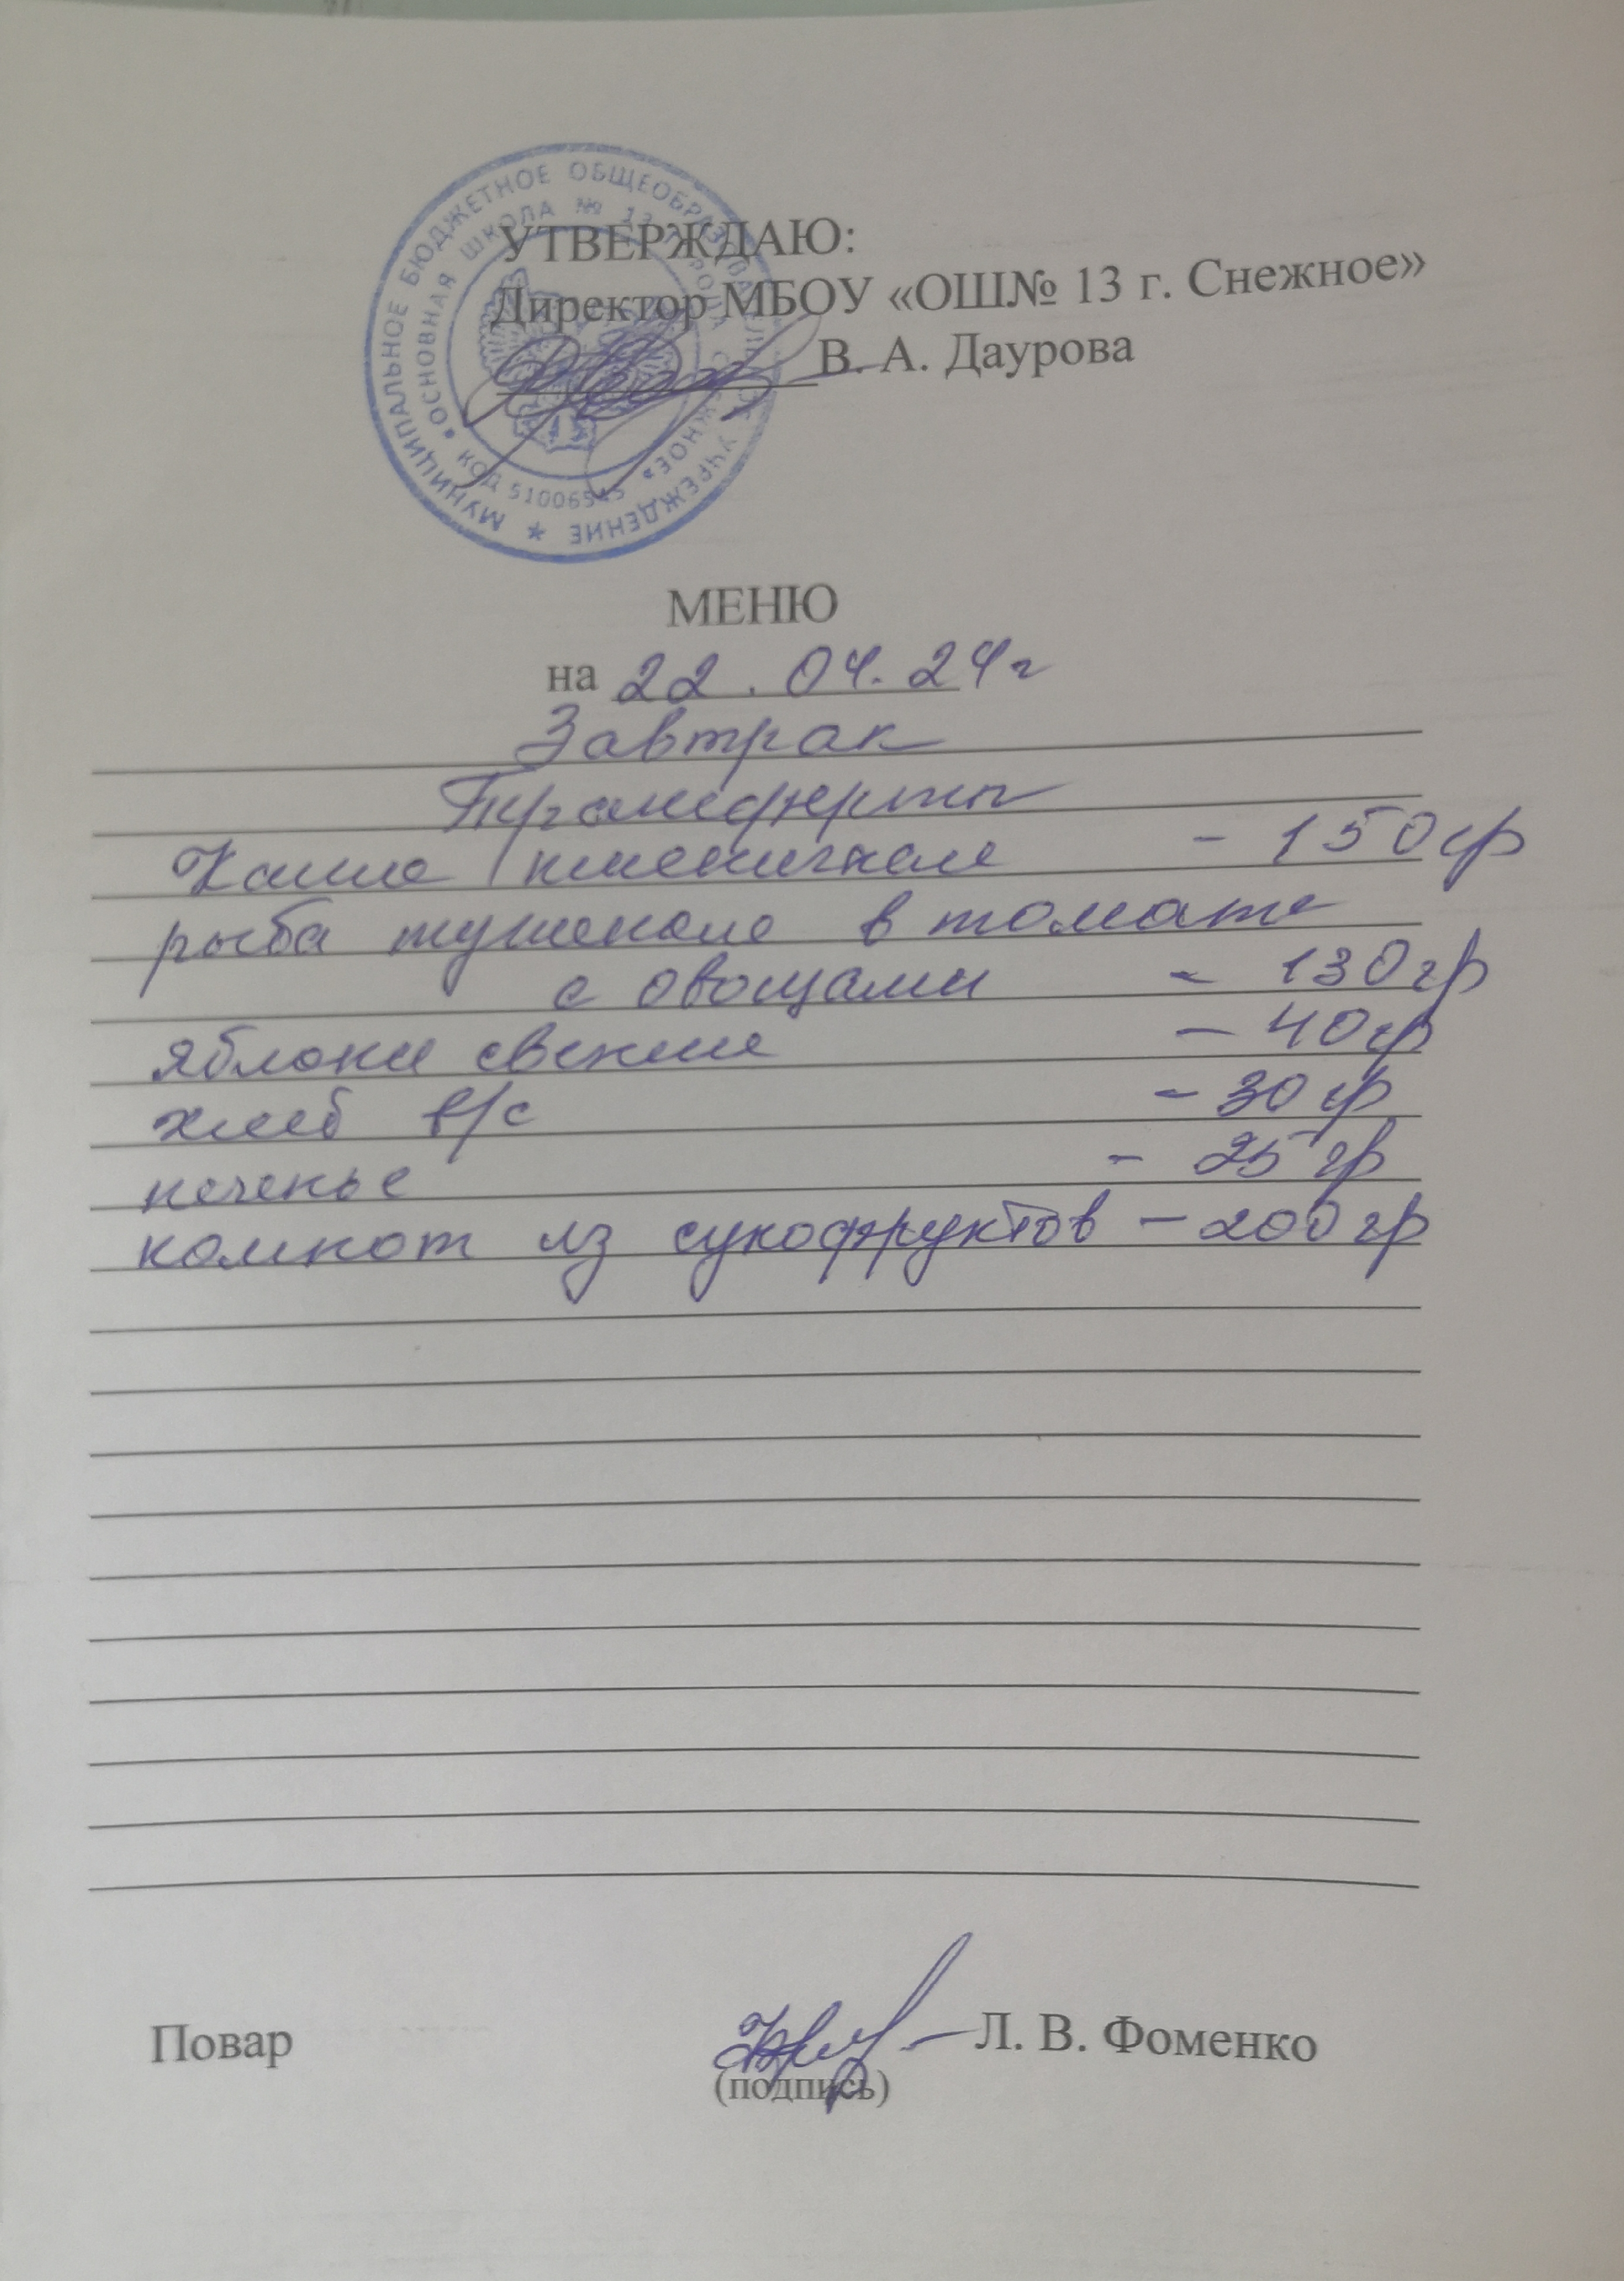 МУНИЦИПАЛЬНОЕ БЮДЖЕТНОЕ ОБЩЕОБРАЗОВАТЕЛЬНОЕ УЧРЕЖДЕНИЕ *
«ОСНОВНАЯ ШКОЛА № 13 ГОРОДА СНЕЖНОЕ»
КОД
УТВЕРЖДАЮ:
Директор МБОУ «ОШ№ 13 г. Снежное»
В. А. Даурова
МЕНЮ
на 22.04.24г
Завтрак
Трансферты
Каша пшеничная - 150гр
рыба тушеная в томате
с овощами - 130гр
яблоки свежие - 40гр
хлеб в/с - 30гр
печенье - 25гр
компот из сухофруктов - 200гр
Повар Л. В. Фоменко
(подпись)